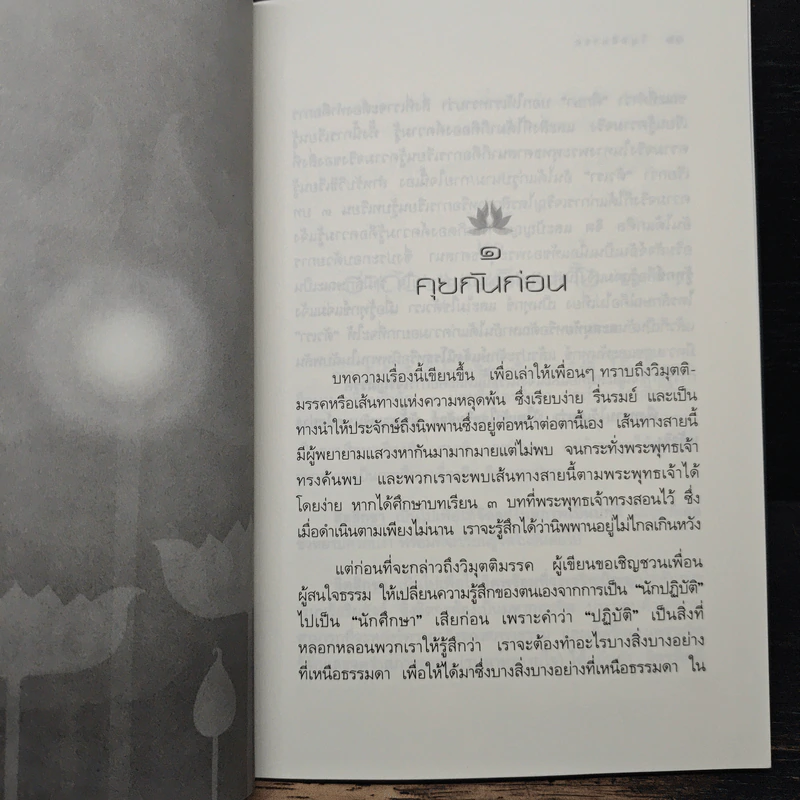 ๑
คุยกันก่อน
บทความเรื่องนี้เขียนขึ้น เพื่อเล่าให้เพื่อนๆ ทราบถึงวิมุตติ-
มรรคหรือเส้นทางแห่งความหลุดพ้น ซึ่งเรียบง่าย รื่นรมย์ และเป็น
ทางนำให้ประจักษ์ถึงนิพพานซึ่งอยู่ต่อหน้าต่อตานี้เอง เส้นทางสายนี้
มีผู้พยายามแสวงหากันมามากมายแต่ไม่พบ จนกระทั่งพระพุทธเจ้า
ทรงค้นพบ และพวกเราจะพบเส้นทางสายนี้ตามพระพุทธเจ้าได้
โดยง่าย หากได้ศึกษาบทเรียน ๓ บทที่พระพุทธเจ้าทรงสอนไว้ ซึ่ง
เมื่อดำเนินตามเพียงไม่นาน เราจะรู้สึกได้ว่านิพพานอยู่ไม่ไกลเกินหวัง
แต่ก่อนที่จะกล่าวถึงวิมุตติมรรค ผู้เขียนขอเชิญชวนเพื่อน
ผู้สนใจธรรม ให้เปลี่ยนความรู้สึกของตนเองจากการเป็น “นักปฏิบัติ”
ไปเป็น “นักศึกษา” เสียก่อน เพราะคำว่า “ปฏิบัติ” เป็นสิ่งที่
หลอกหลอนพวกเราให้รู้สึกว่า เราจะต้องทำอะไรบางสิ่งบางอย่าง
ที่เหนือธรรมดา เพื่อให้ได้มาซึ่งบางสิ่งบางอย่างที่เหนือธรรมดา ใน